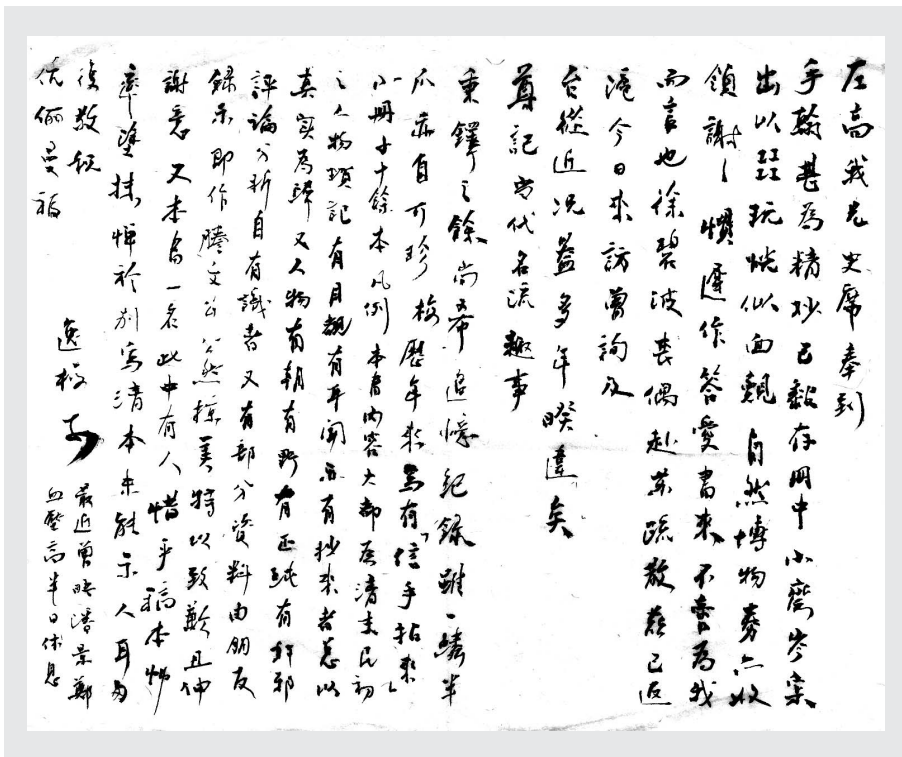 左高我兄史席奉到
手翰甚为精妙已黏存册中小斋岑寂
出以玩恍似面觌自然博物剪亦收
领谢谢惯迟作答爱书来不啻为我
而言也徐碧波丧偶赴苏疏散兹已返
沪今日来访曾询及
台从近况盖多年暌违矣
尊记当代名流趣事
秉铎之余尚希追忆纪录虽一鳞半
爪亦自可珍梅历年来写有信手拈来
小册子十余本凡例本书内容大都为清末民初
之人物琐记有目睹有耳闻亦有抄来者总以
真实为归又人物有朝有野有正純有奸邪
评论分析自有识者又有部分资料由朋友
录示即作腾文公公然掠美特以致歉且伸
谢意又本书一名此中有人惜乎稿本
率涂抹惮于别写清本未能示人耳匆
复敬祝
伉俪曼福
逸梅
最近曾晤潘景郑
血压高半日休息